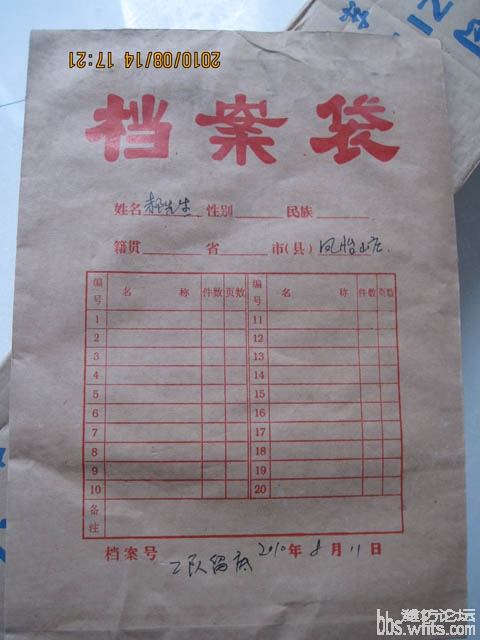 2010/08/14 17:21
档案袋
姓名 郝先生 性别 民族
籍贯 省 市(县) 凤怡山庄
编号 名 称 件数 页数 编号 名 称 件数 页数
1 11
2 12
3 13
4 14
5 15
6 16
7 17
8 18
9 19
10 20
备注
档案号 二队留底 2010年8月11日
潍坊论坛
bbs.wfits.com